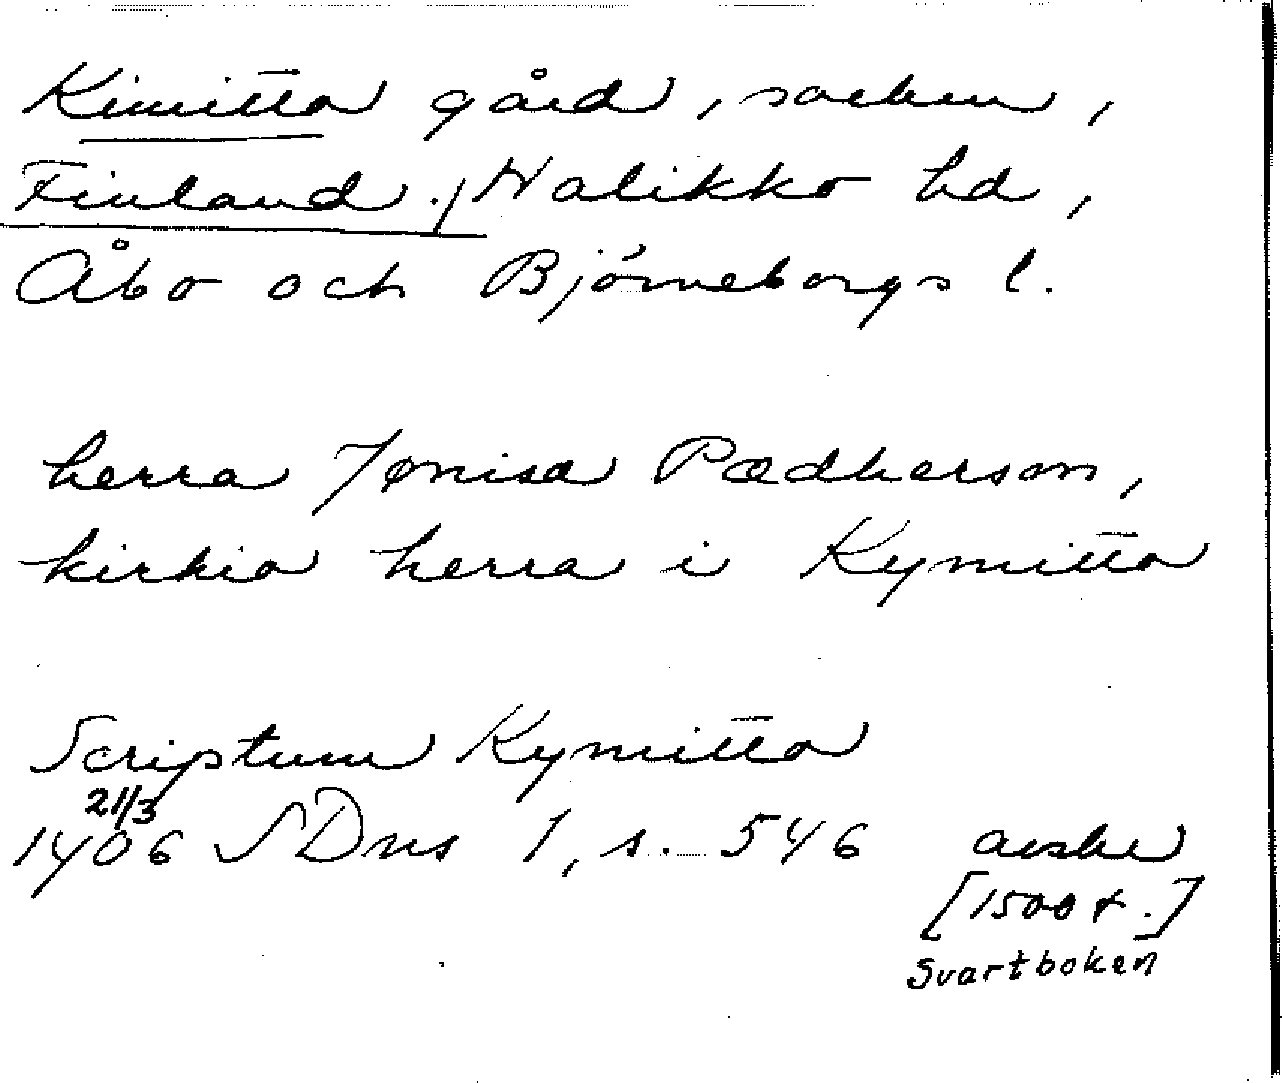 Kimitto gård, socken,
Finland./ Halikko hd,
Åbo och Björneborgs l.
herra Jønisa Pædherson,
kirkio herra i Kymitto
Scriptum Kymitto
21/3
1406 SDns 1, s. 546 avskr
[1500 t.]
Svartboken